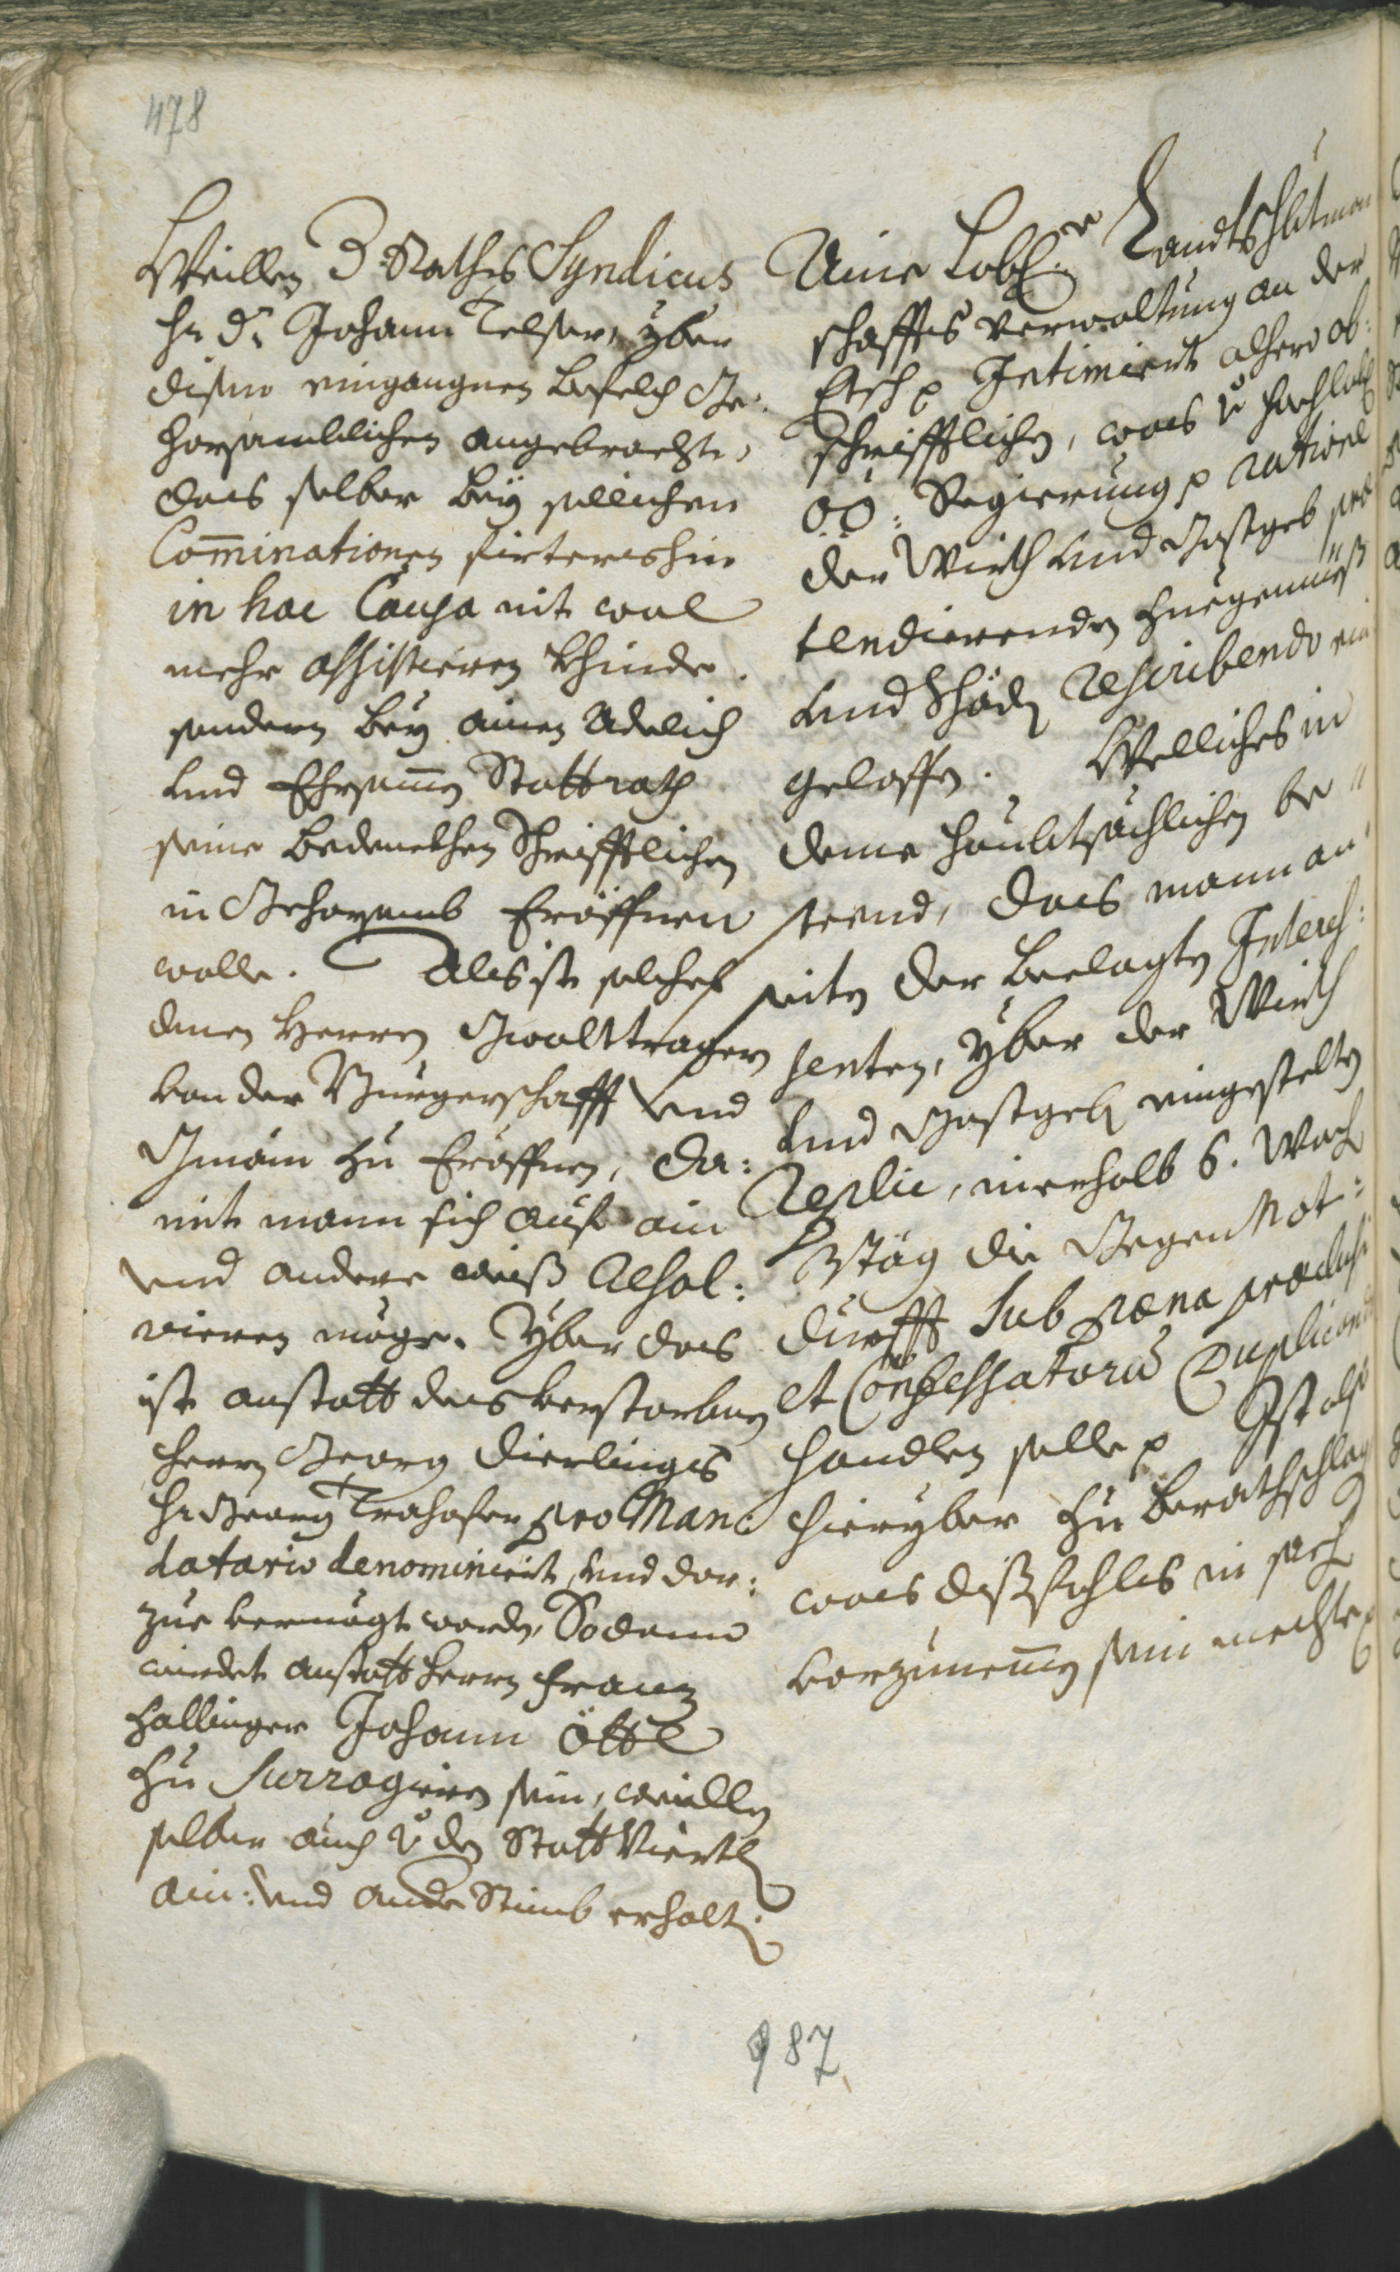 478
Weillen Rathes Syndicus
hr Dr Johann Telser, yber
disen eingangnen Befelch Ge:
horsambblichen angebracht,
das selber bey sollichen
Com̅inationen firtershin
in hac Causa nit woll
mehr assistieren khinde.
sondern bey ainen Adelich
und Ehrsamen Stattrath
seine bedenckhen Schrifftlichen
in Gehorsamb Eröffnen
wolle. Als ist solches
denen Herren Gwalttragern
von der Burgerschafft und
Gmain zu Eröffnen, da:
mit mann sich auf ain
und andere weiß Resol:
vieren möge. Yber das
ist anstatt des verstorbnen
Herrn Georg Dierlings
Hr Georg Trahofer pro Man:
datario denominiert, und dar:
zue vermögt worden, Sodann
wirdet anstatt Herrn Franz
Hallinger Johann Öttl
zu Surrogiern sein, weillen
selber auch v: den Statt Viertl
ain: und ander Stimb erhalten.
Aine Lobl: Landtshaubtman
schaffts Verwaltung an der
Etsch p Intimiert alhero ob:
schrifftlichen, was v: hochlobl
OÖ: Regierung p ratione
der Wirth und Gastgeb prae
tendierenden Fuegenuß
und Schäden rescribendo ein
geloffen. Welliches in
deme haubtsächlichen be
steend, das mann an
seiten der Beclagten Interes:
senten, yber der Wirth
und Gastgeb eingestelten
Replic, innerhalb 6. Woch
Täg die Gegen Not:
durfft sub poena praeclusi
et Confessatorum Duplicando
handlen solle p Ist also
hieryber zu berathschlagen
was dißfahls in sach
vorzunemen sein mechte p
987